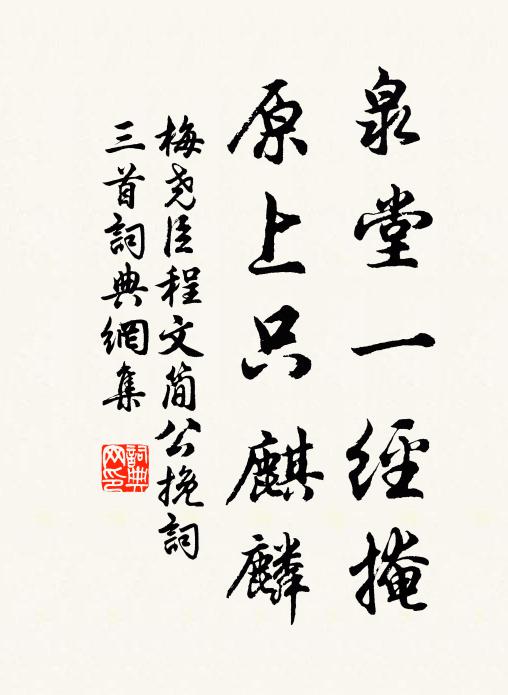 泉堂一經掩
原上只麒麟
梅堯臣程文简公挽詞
三首詞典網集
詞典
网印